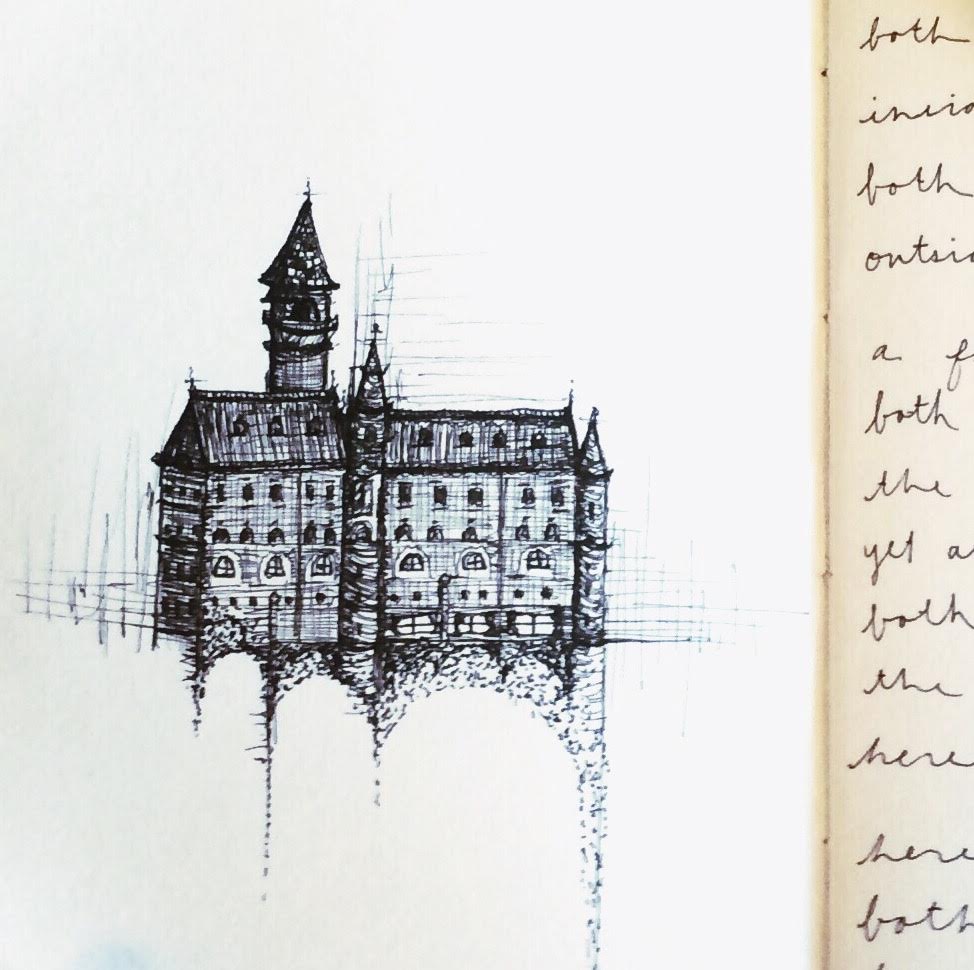 both
insid
both
outsid
a f
both
the
yet a
both
the
here
here
both